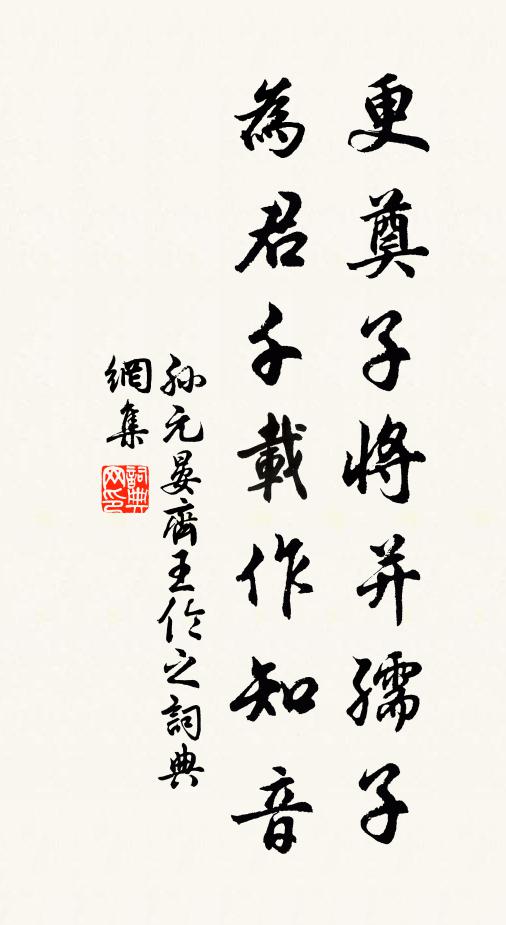 更奠子將并孺子
為君千載作知音
孫元晏齊王伶之詞典
網集
詞典網印